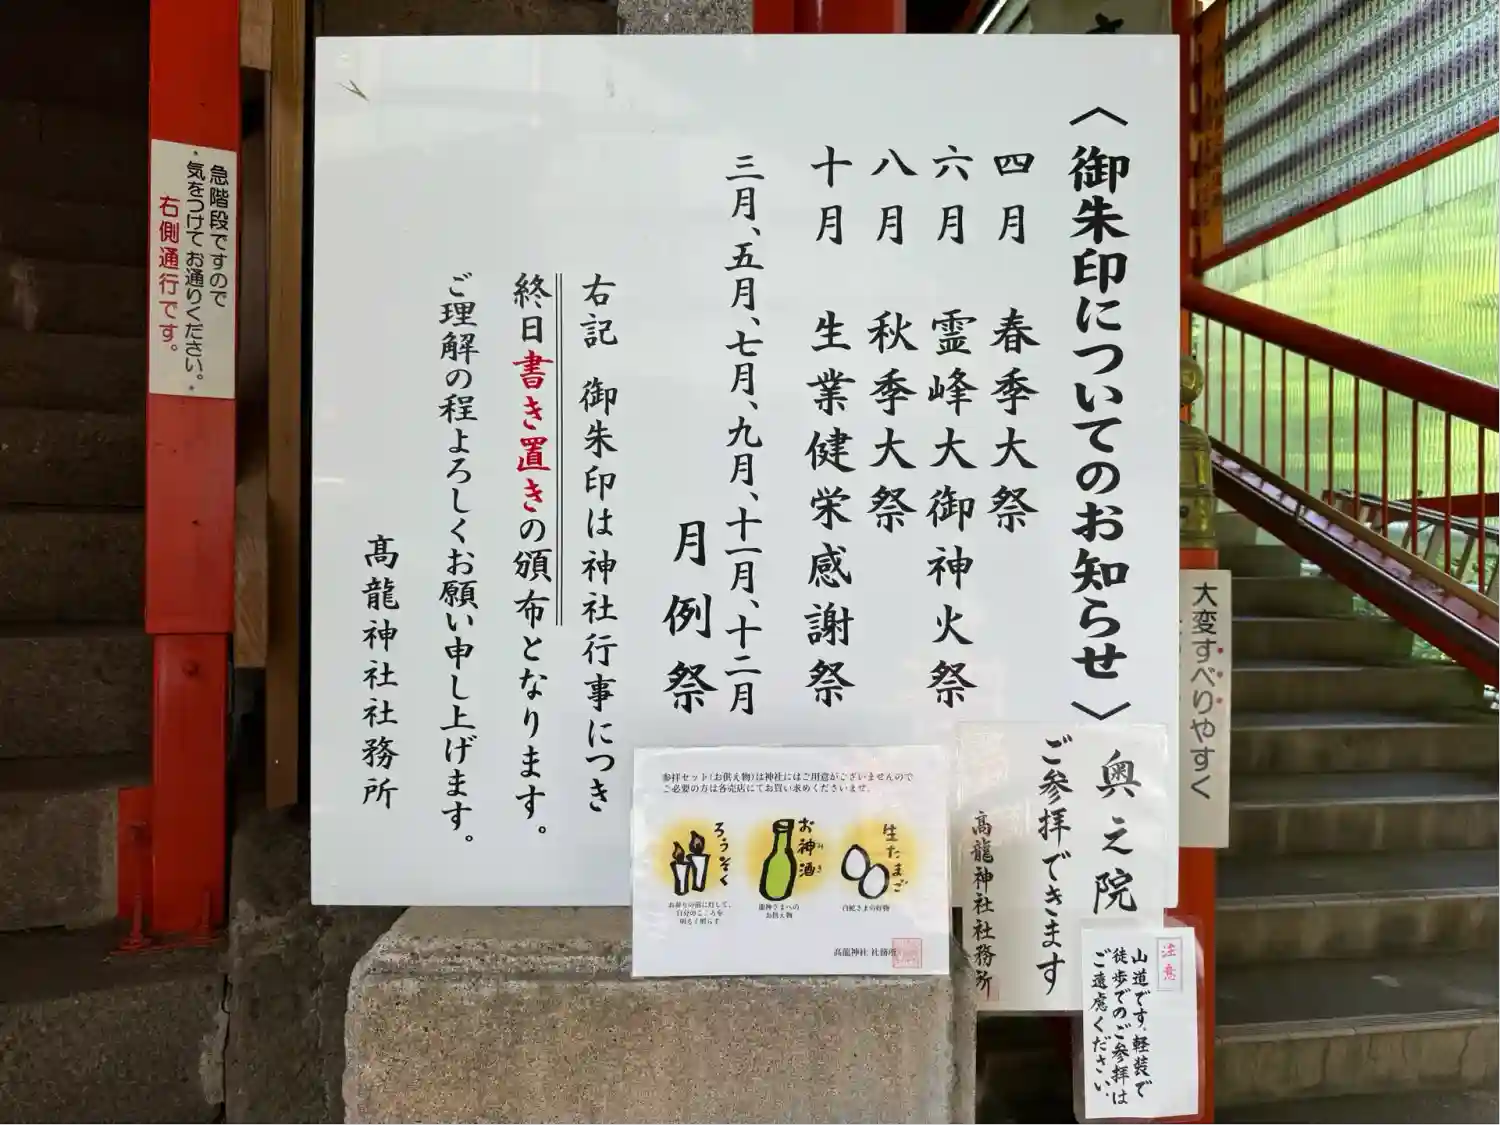 〈御朱印についてのお知らせ〉
四月 春季大祭
六月 霊峰大御神火祭
八月 秋季大祭
十月 生業健栄感謝祭
三月、五月、七月、九月、十一月、十二月
月例祭
右記 御朱印は神社行事につき
終日書き置きの頒布となります。
ご理解の程よろしくお願い申し上げます。
高龍神社社務所
奥之院
ご参拝できます
高龍神社社務所
注意
山道です。軽装で
徒歩でのご参拝は
ご遠慮ください。
参拝セット(お供え物)は神社にはご用意がございませんので
ご必要の方は各売店にてお買い求めくださいませ。
生たまご
白蛇さまの好物
お神酒
みき
龍神さまへの
お供え物
ろうそく
お参りの前に灯して、
自分のこころを
明るく照らす
高龍神社 社務所
大変すべりやすく
急階段ですので
気をつけてお通りください。
右側通行です。